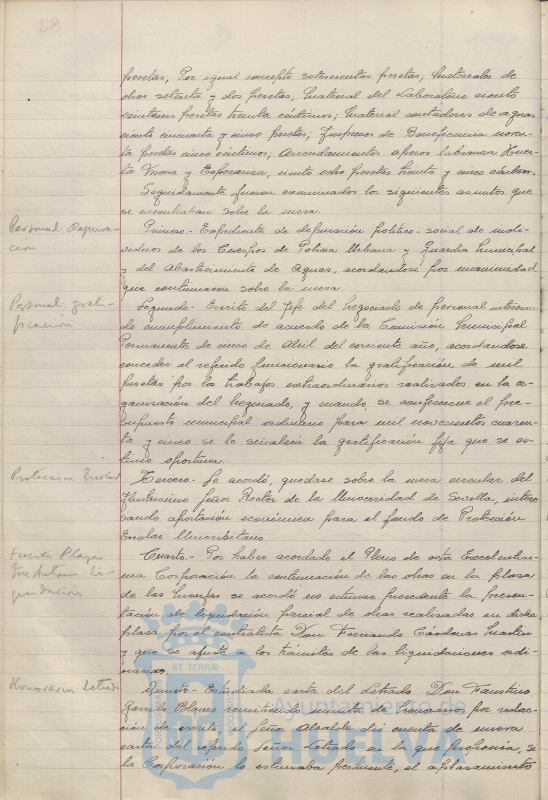 pesetas; Por igual concepto setecientas pesetas; Materiales de
obras setenta y dos pesetas, Material del Laboratorio ciento
veintiseis pesetas treinta céntimos; Material contadores de aguas
ciento cincuenta y cinco pesetas; Impresos de Beneficencia noven-
ta pesetas cinco céntimos, Arrendamientos aperos labranza Huer-
ta Mena y Esperanza, ciento ocho pesetas treinta y cinco céntimos.
Seguidamente fueron examinados los siguientes asuntos que
se encontraban sobre la mesa.
Personal. Depura-
ción
Primero.- Expediente de depuración político-social de indi-
viduos de los Cuerpos de Policía Urbana y Guardia Municipal
y del Abastecimiento de Aguas, acordándose por unanimidad
que continuaran sobre la mesa.
Personal grati-
ficación
Segundo.- Escrito del Jefe del Negociado de Personal interesan-
do cumplimiento de acuerdo de la Comisión Municipal
Permanente de cinco de Abril del corriente año, acordándose
conceder al referido funcionario la gratificación de mil
pesetas por los trabajos extraordinarios realizados en la or-
ganización del Negociado, y cuando se confeccione el pre-
supuesto municipal ordinario para mil novecientos cuaren-
ta y cinco se le señalará la gratificación fija que se es-
time oportuna.
Protección Escolar
Tercero.- Se acordó, quedase sobre la mesa circular del
Ilustrísimo Señor Rector de la Universidad de Sevilla, intere-
sando aportación económica para el fondo de Protección
Escolar Universitario
Fuente Plaza
Jose Antonio li-
quidación
Cuarto.- Por haber acordado el Pleno de esta Excelentísi-
ma Corporación la continuación de las obras en la plaza
de las Monjas se acordó no estimar procedente la presen-
tación de liquidación parcial de obras realizadas en dicha
plaza por el contratista Don Fernando Cárdenas Martín
y que se ajuste a los trámites de las liquidaciones ordi-
narias.
Honorarios Letrado
Quinto.- Estudiada carta del Letrado Don Faustino
Garrido Blanco remitiendo minuta de honorarios por redac-
ción de escrito, el Señor Alcalde dió cuenta de nueva
carta del referido Señor Letrado en la que proponía, si
la Corporación lo estimaba pertinente, el aplazamiento
ET TERRÆ
Ayuntamiento de
HUELVA